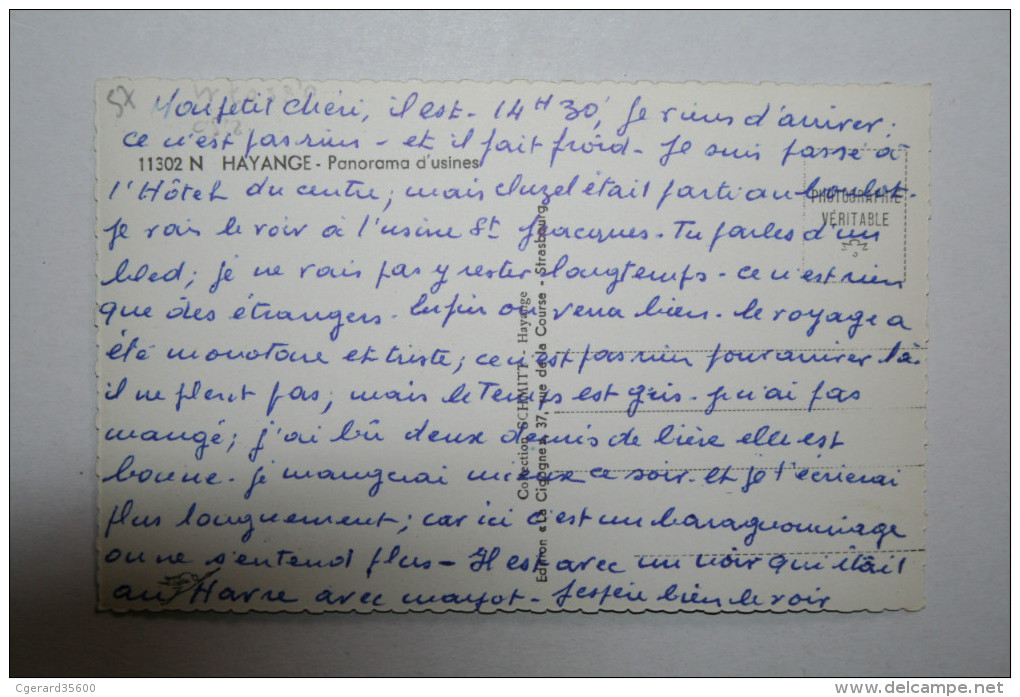 57
Mon petit chéri, il est - 14 H 30, je viens d'arriver.
ce n'est pas rien - et il fait froid - Je suis passé à
11302 N HAYANGE - Panorama d'usines
l'Hôtel du centre, mais était parti au boulot.
PHOTOGRAPHIE
VÉRITABLE
je vais le voir à l'usine St Jacques - Tu parles d'un
bled; je ne vais pas y rester longtemps - ce n'est rien
que des étrangers. Enfin on verra bien - le voyage a
été monotone et triste; ce n'est pas rien pour arriver là.
il ne pleut pas, mais le temps est gris - je n'ai pas
mangé; j'ai bû deux demis de bière elle est
bonne - je mangerai mieux ce soir - et je t'écrierai
plus longuement; car ici c'est un baragouinage
on ne s'entend plus - Il est avec un noir qui était
au Havre avec - J'espère bien le voir
Collection SCHMITT - Hayange
Edition « La Cigogne », 37, rue de la Course - Strasbourg
Cgerard35600
www.delcampe.net